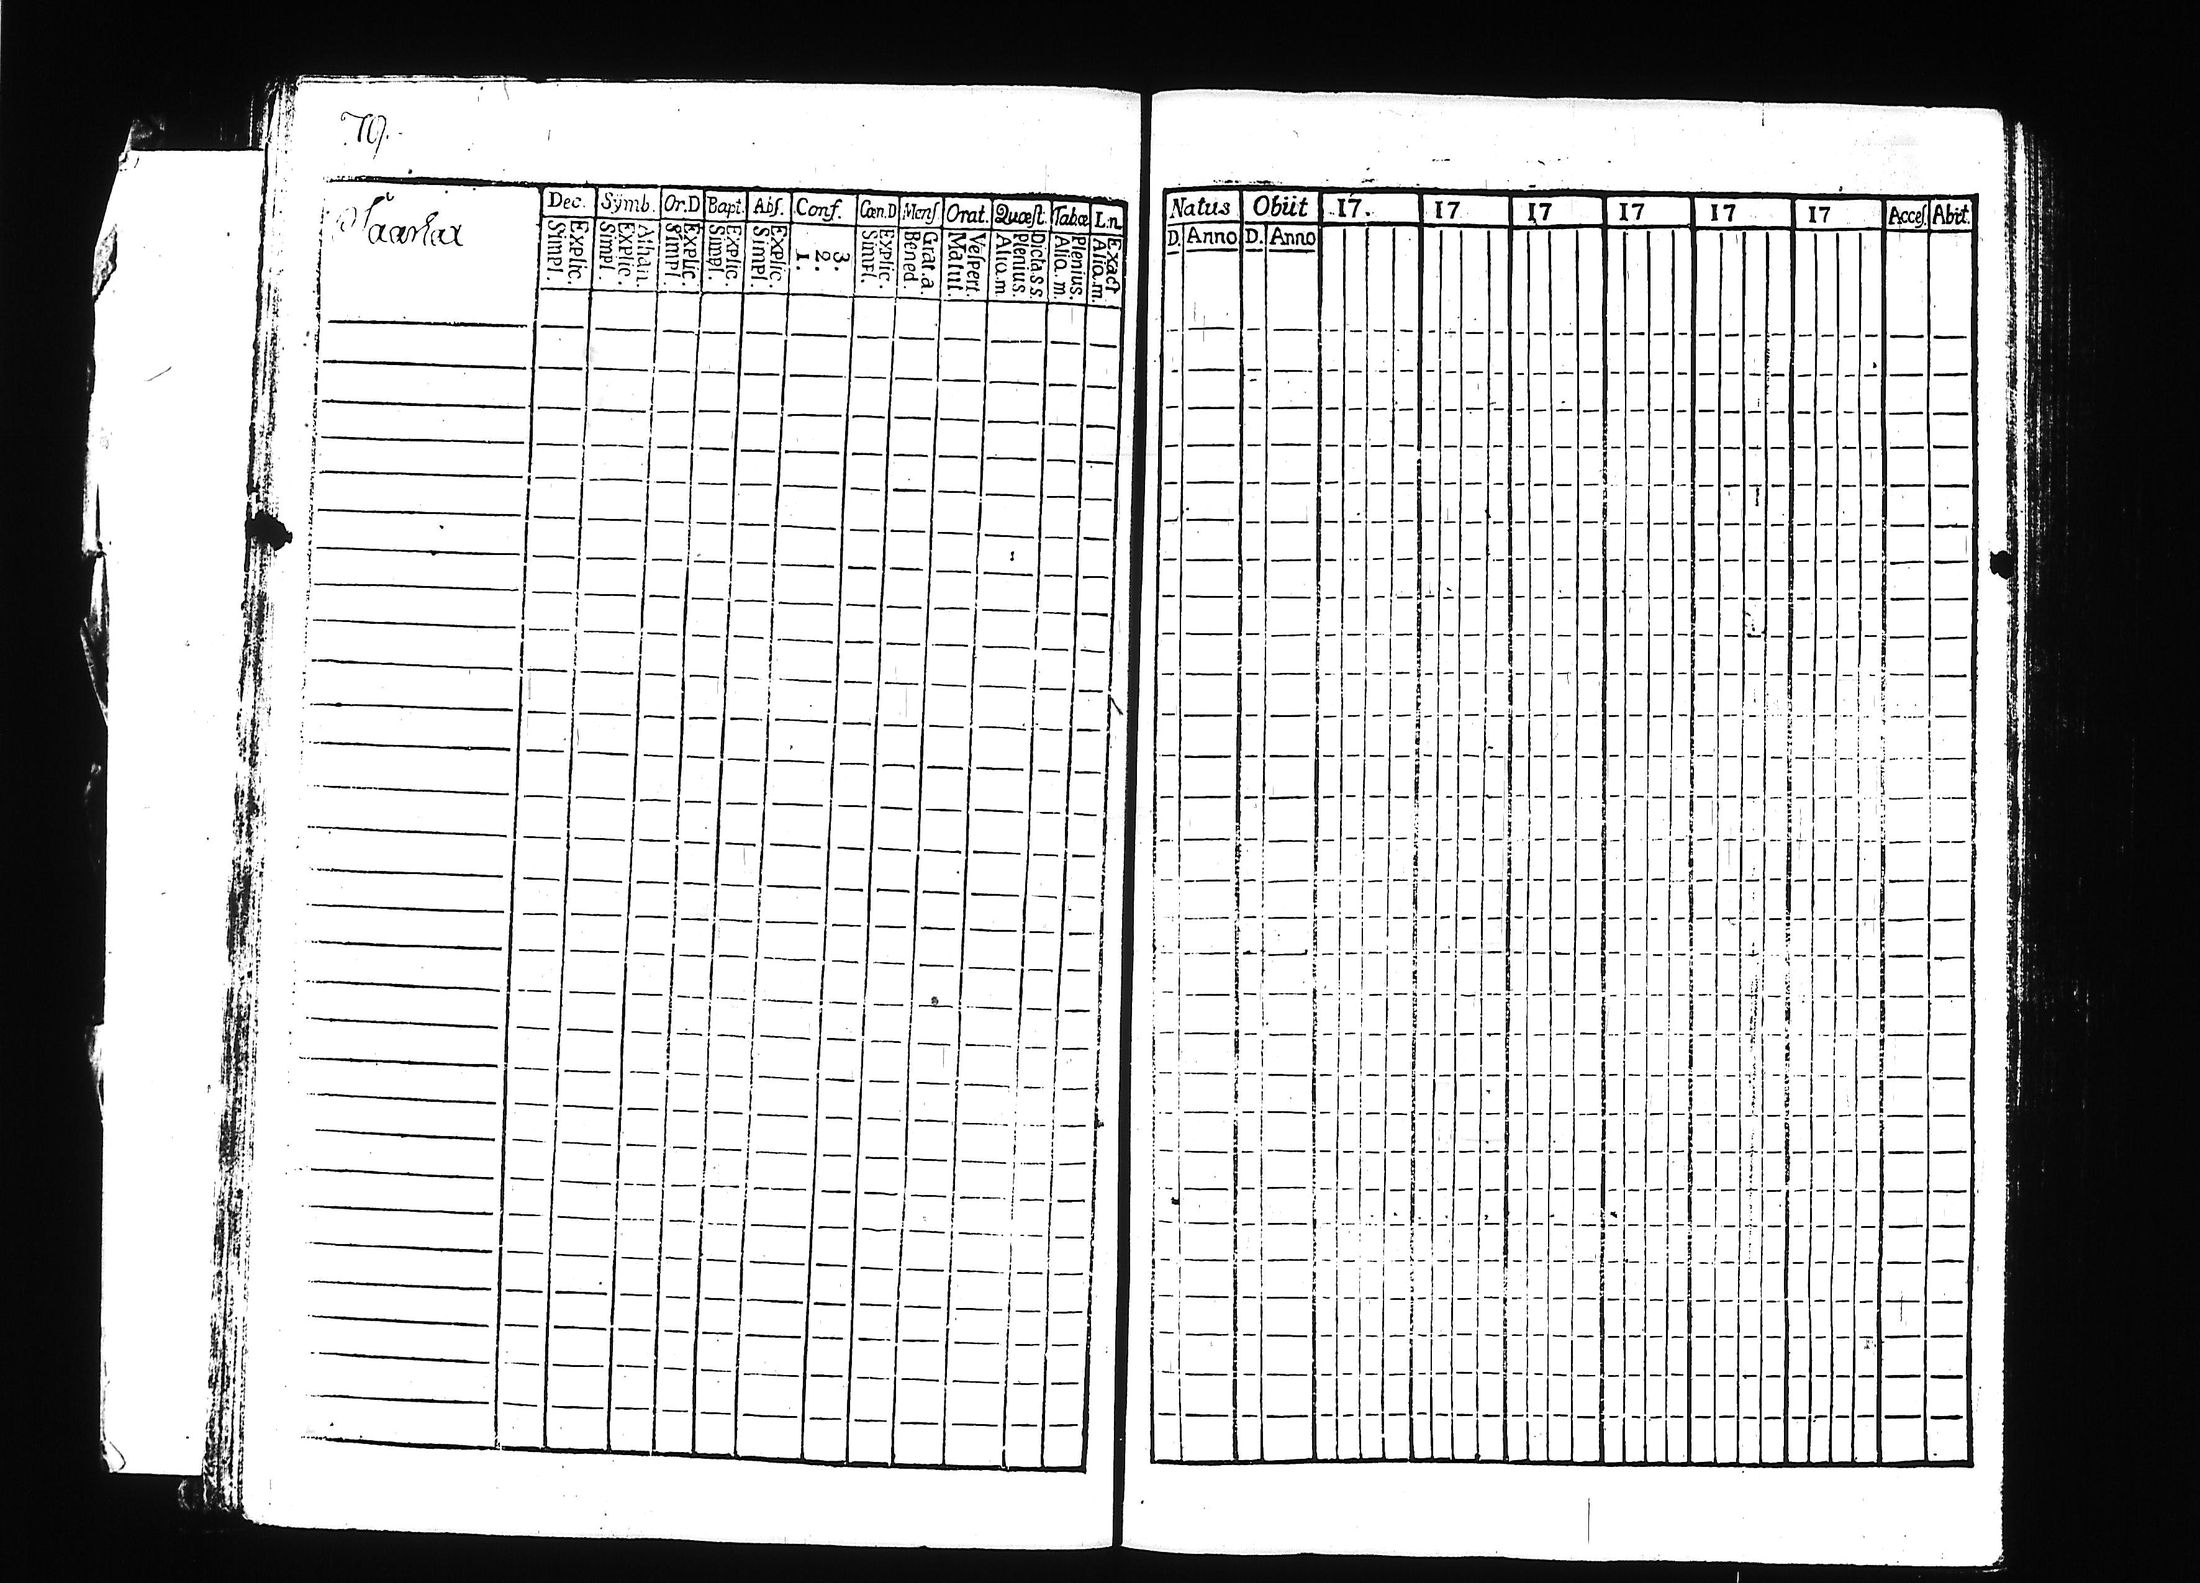 70.
Dec. Symb. Or.D Bapt. Abſ. Conf. Cœn.D Menſ. Orat. Quæſt. Tabæ L.n.
Explic. Simpl. Athan. Explic. Simpl. Explic. Simpl. Explic. Simpl. Explic. Simpl. 3. 2. 1. Explic. Simpl. Grat.a Bened. Veſpert. Matut. Dicta.s.s. Plenius. Alia.m Plenius. Alia.m. Exact Alia.m.
Natus Obiit 17. 17 17 17 17 17 Acceſ. Abiit.
D. Anno D. Anno